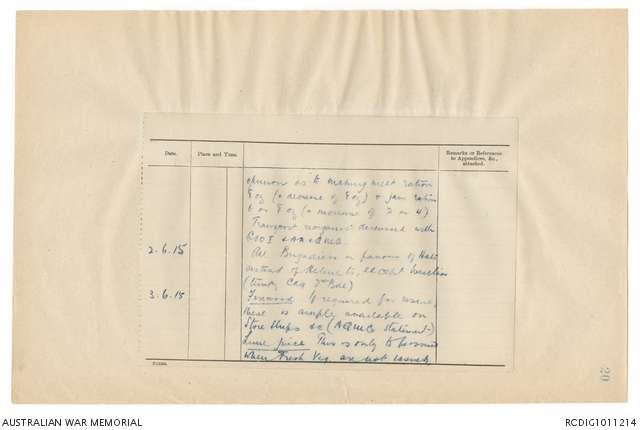 Date.
Place and Time.
Remarks or References
to Appendices, &c.,
attached.
opinion as to making meat ration
8 oz (a decrease of 8 oz) & jam ration
6 or 8 oz (a increase of 2 or 4)
Transport required discussed with
GSO I & AA & QMG
2.6.15
All Brigadiers in favour of
instead of except
3.6.15
Firewood If required for issue,
these is amply available on
Store Ships as (AQMGs statement)
Lime juice This is only to be issued
when Fresh Veg. are not issued
20
AUSTRALIAN WAR MEMORIAL
RCDIG1011214